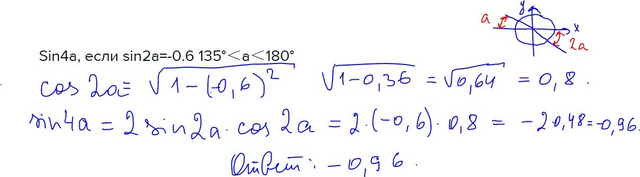 y
a
x
2a
Sin4a, если sin2a=-0.6 135°<a<180°
cos 2a = √(1-(-0,6)²) √(1-0,36) = √0,64 = 0,8.
sin4a = 2 sin2a · cos 2a = 2·(-0,6)·0,8 = -2·0,48=-0,96.
Ответ: -0,96.